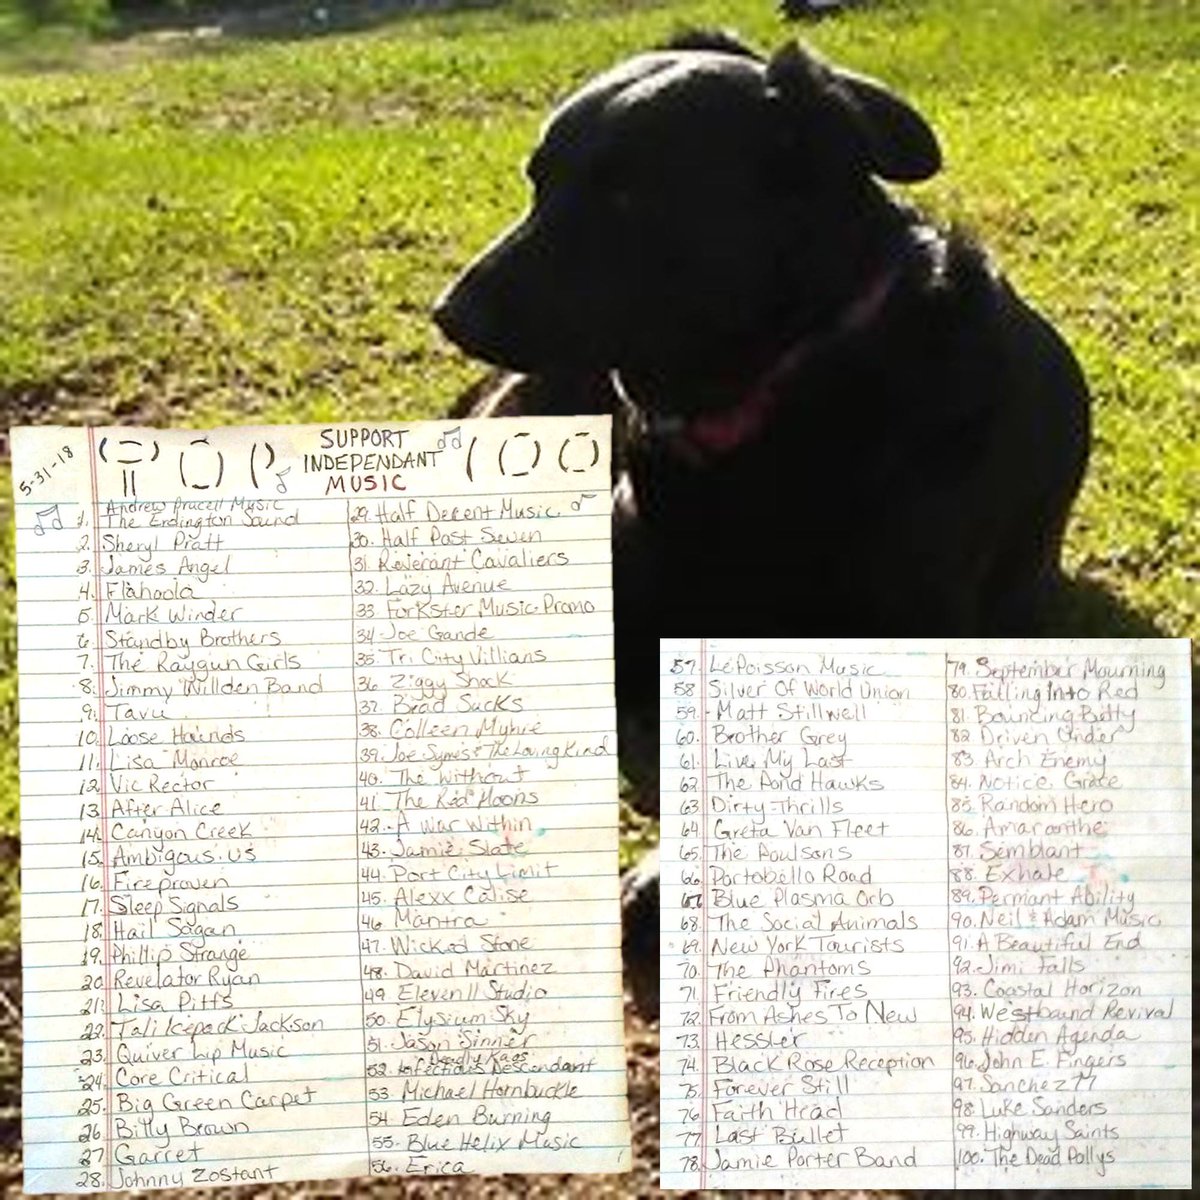 5-31-18
SUPPORT
INDEPENDANT
MUSIC
Andrew Prucell Music
1. The Erdington Sound
2. Sheryl Pratt
3. James Angel
4. Flahoola
5. Mark Winder
6. Standby Brothers
7. The Raygun Girls
8. Jimmy Willden Band
9. Tavu
10. Loose Hounds
11. Lisa Monroe
12 Vic Rector
13. After Alice
14. Canyon Creek
15. Ambigous.us
16. Fireproven
17. Sleep Signals
18. Hail Sagan
19. Phillip Strange
20 Revelator Ryan
21. Lisa Pitts
22. Tali Icepack Jackson
23. Quiver Lip Music
24. Core Critical
25. Big Green Carpet
26 Billy Brown
27 Garret
28. Johnny Zostant
29. Half Decent Music
30. Half Past Seven
31. Reverant Cavaliers
32. Lazy Avenue
33 Forkster Music Promo
34 Joe Gande
35. Tri City Villians
36 Ziggy Shock
37. Brad Sucks
38. Colleen
39. Joe Symes & The Loving Kind
40. The Without
41. The Red Moons
42. A War Within
43. Jamie Slate
44. Port City Limit
45. Alexx Calise
46 Mantra
47. Wicked Stone
48. David Martinez
49 Eleven 11 Studio
50. Elysium Sky
51. Jason Sinner
Deadly Rags
52. Infectious Descendant
53. Michael Hornbuckle
54. Eden Burning
55. Blue Helix Music
56. Erica
57. LePoisson Music
58 Silver Of World Union
59. Matt Stillwell
60. Brother Grey
61. Live My Last
62 The Pond Hawks
63 Dirty Thrills
64. Greta Van Fleet
65. The Poulsons
66 Portobello Road
67 Blue Plasma Orb
68 The Social Animals
69. New York Tourists
70. The Phantoms
71. Friendly Fires
72. From Ashes To New
73. Hessler
74. Black Rose Reception
75. Forever Still
76 Faith Head
77 Last Bullet
78. Jamie Porter Band
79. September Mourning
80. Falling Into Red
81. Bouncing Betty
82 Driven Under
83. Arch Enemy
84. Notice, Grace
85. Random Hero
86. Amaranthe
87. Semblant
88. Exhale
89. Permant Ability
90. Neil & Adam Music
91. A Beautiful End
92. Jimi Falls
93. Coastal Horizon
94. Westbound Revival
95. Hidden Agenda
96. John E. Fingers
97. Sanchez 77
98. Luke Sanders
99. Highway Saints
100. The Dead Pollys